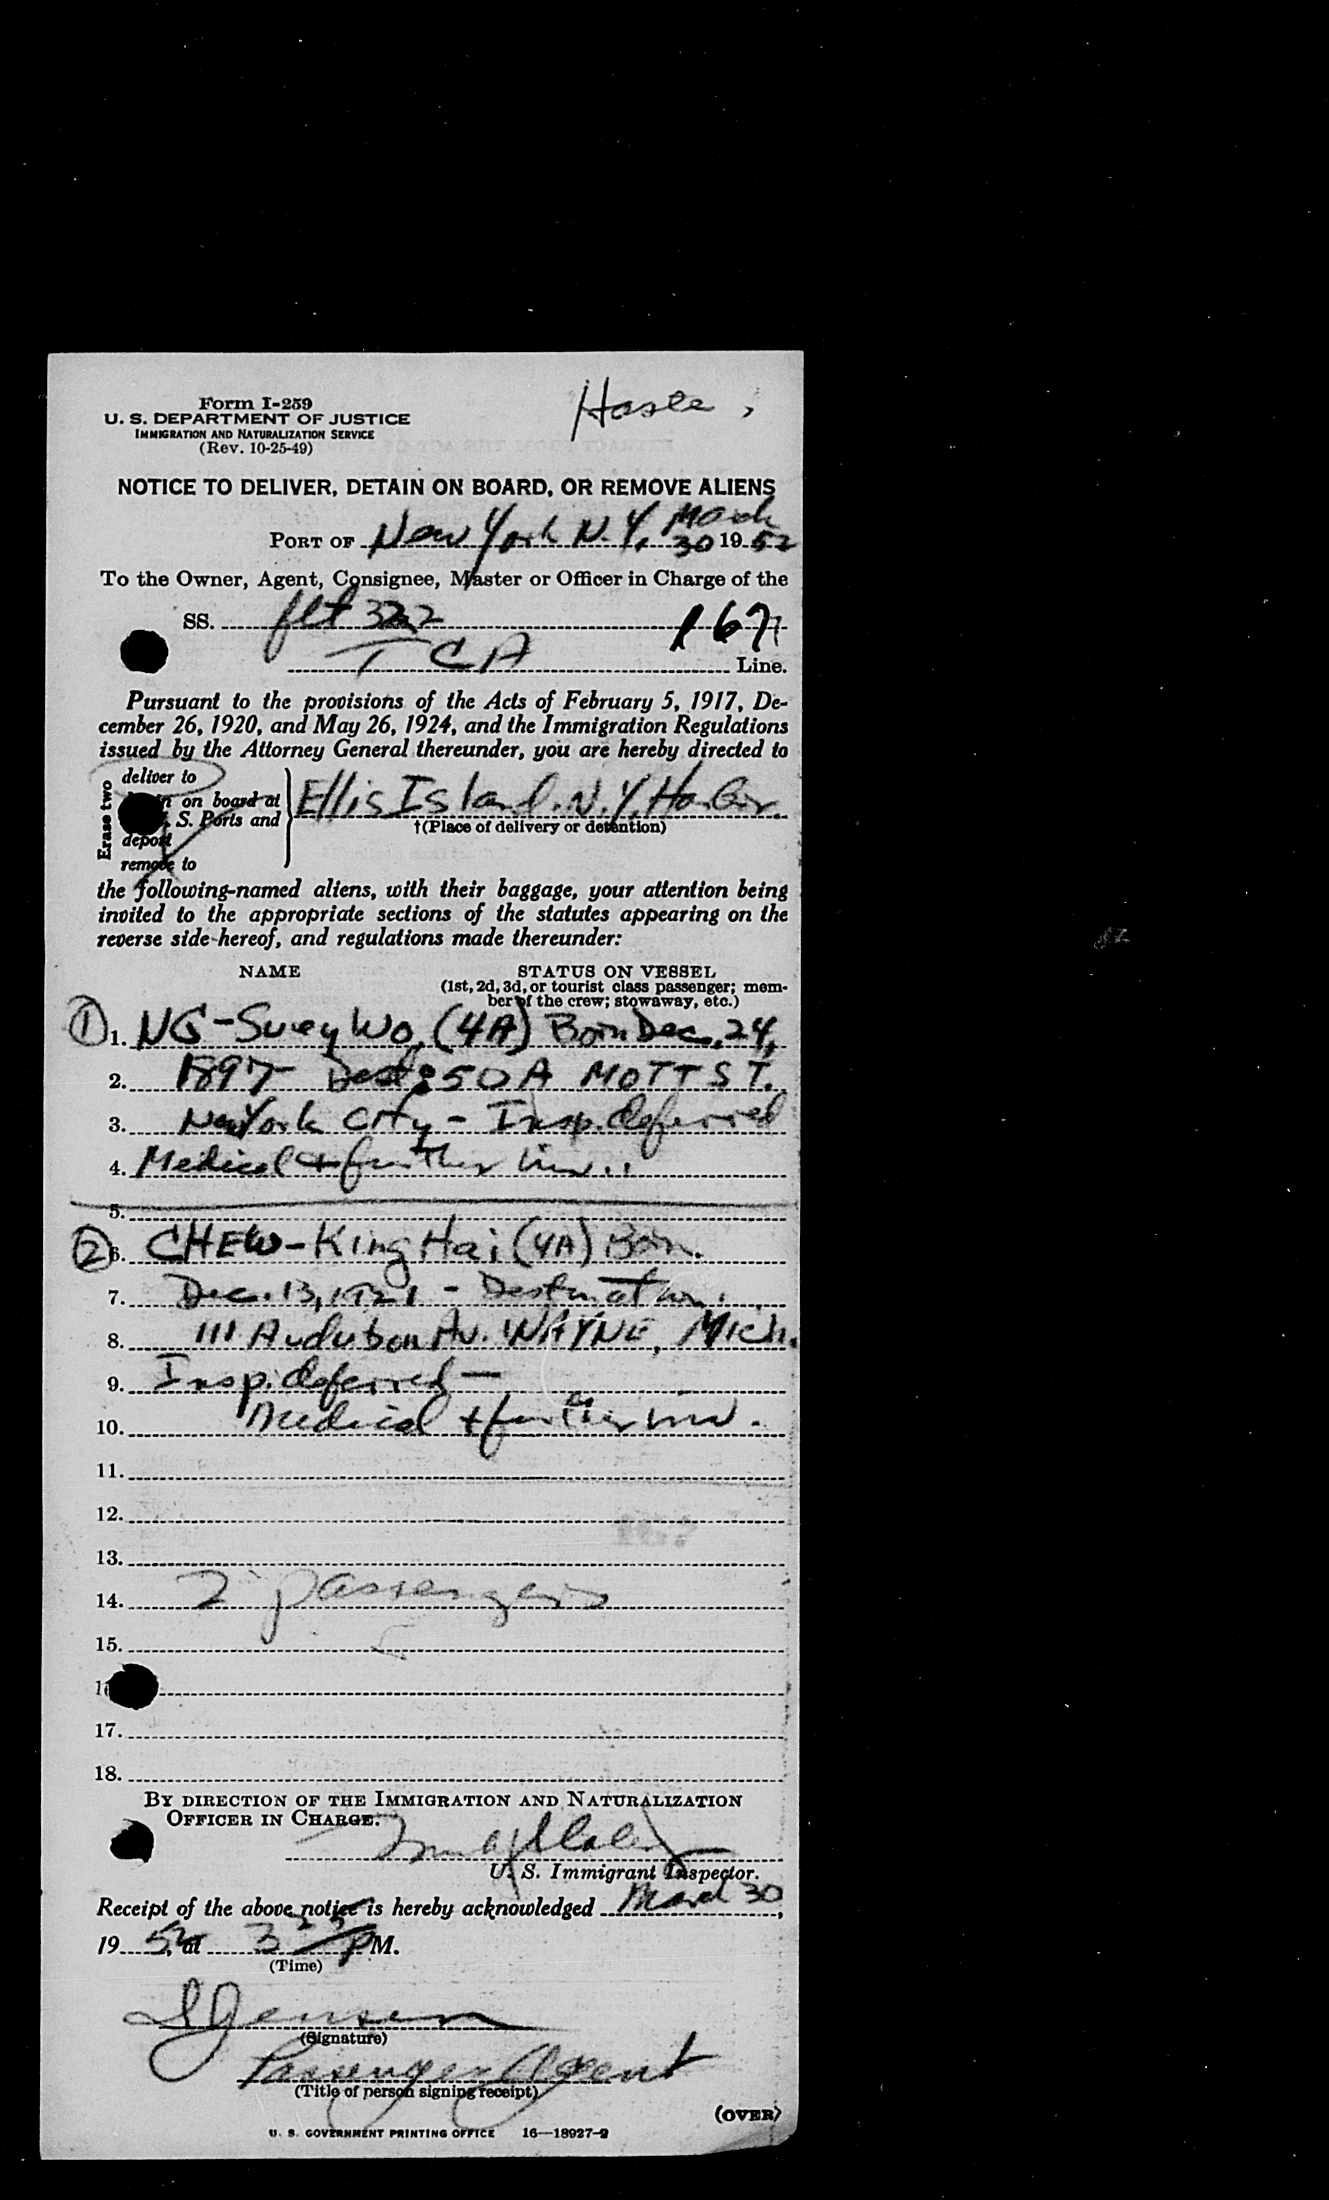 Form I-259
U. S. DEPARTMENT OF JUSTICE
IMMIGRATION AND NATURALIZATION SERVICE
(Rev. 10-25-49)
NOTICE TO DELIVER, DETAIN ON BOARD, OR REMOVE ALIENS
PORT OF New York N.Y. March 30 1952
To the Owner, Agent, Consignee, Master or Officer in Charge of the
SS. flt 322 167
TCA Line.
Pursuant to the provisions of the Acts of February 5, 1917, De-
cember 26, 1920, and May 26, 1924, and the Immigration Regulations
issued by the Attorney General thereunder, you are hereby directed to
Erase two
deliver to
on board at
S. Ports and
deport
remove to
Ellis Island. N.Y. Harbor.
†(Place of delivery or detention)
the following-named aliens, with their baggage, your attention being
invited to the appropriate sections of the statutes appearing on the
reverse side hereof, and regulations made thereunder:
NAME STATUS ON VESSEL
(1st, 2d, 3d, or tourist class passenger; mem-
ber of the crew; stowaway, etc.)
1 1. NG-Suey Wo, (4A) Born Dec. 24,
2. 1897 Dest: 50A MOTT ST.
3. New York City - Insp. deferred
4. Medical + further inv..
5.
2 6. CHEW-King Hai (4A) Born.
7. Dec. 13, 1921 - Destination.
8. 111 Audubon Av. WAYNE, Mich.
9. Insp. deferred —
10. Medical + further inv.
11.
12.
13.
14. 2 passengers
15.
17.
18.
BY DIRECTION OF THE IMMIGRATION AND NATURALIZATION
OFFICER IN CHARGE.
U. S. Immigrant Inspector.
Receipt of the above notice is hereby acknowledged March 30,
1952, at 3 25 PM.
(Time)
Jensen
(Signature)
Passenger Agent
(Title of person signing receipt)
(OVER)
U. S. GOVERNMENT PRINTING OFFICE 16—18927-2